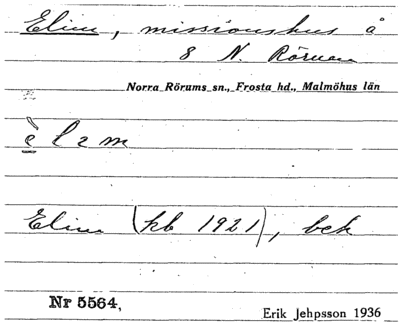 Elim, missionshus å
8 N. Rörum
Norra Rörums sn., Frosta hd., Malmöhus län
è l ɪ m
Elim (kb 1921), bek
Nr 5564,
Erik Jehpsson 1936